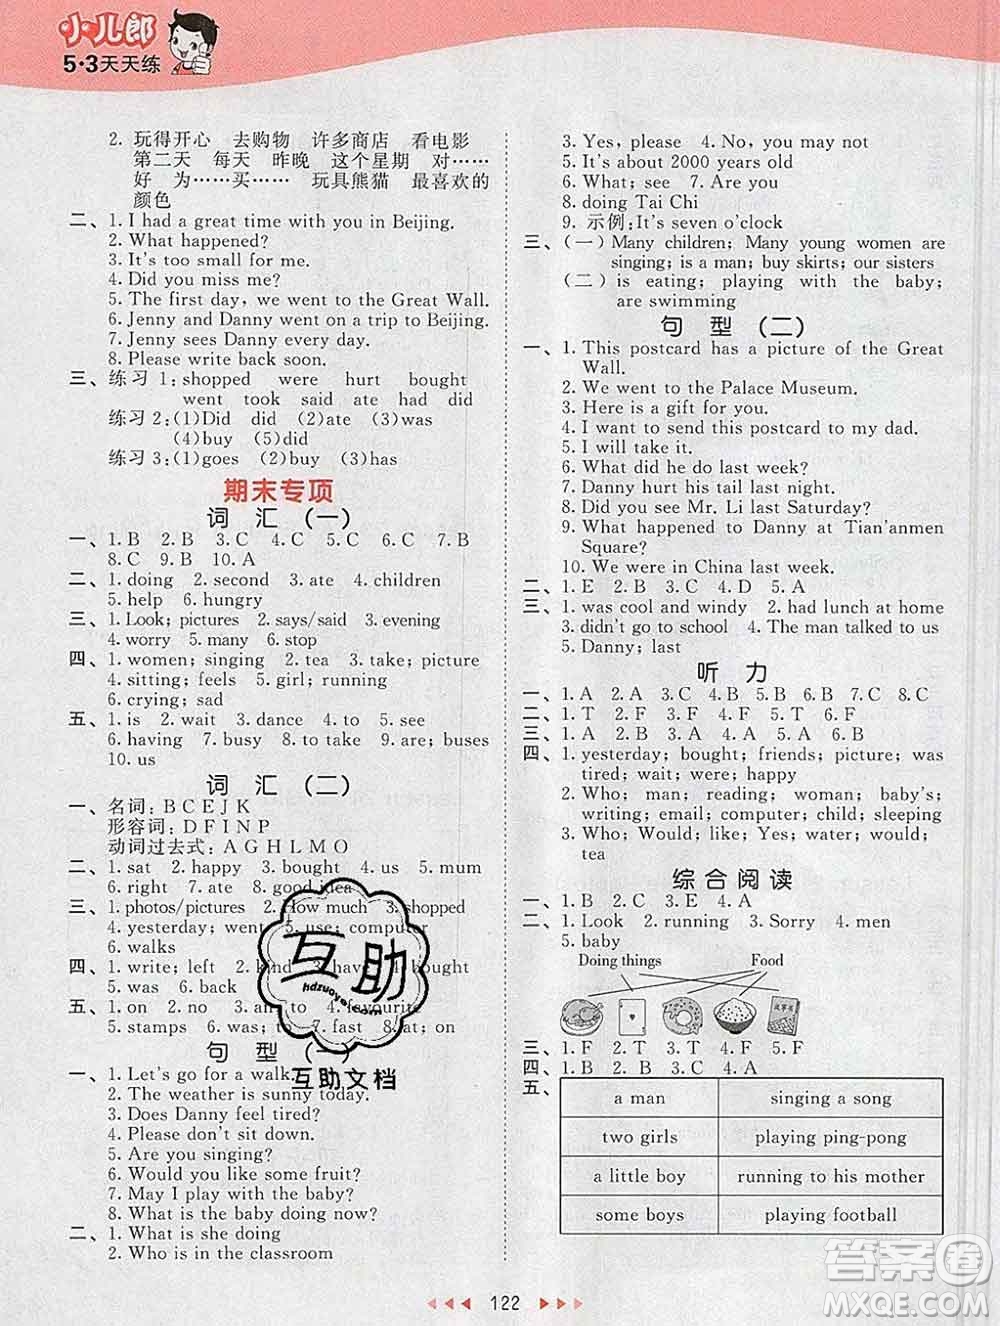 小儿郎
5·3天天练
2. 玩得开心 去购物 许多商店 看电影
第二天 每天 昨晚 这个星期 对……
好 为……买…… 玩具熊猫 最喜欢的
颜色
二、1. I had a great time with you in Beijing.
2. What happened?
3. It's too small for me.
4. Did you miss me?
5. The first day, we went to the Great Wall.
6. Jenny and Danny went on a trip to Beijing.
7. Jenny sees Danny every day.
8. Please write back soon.
三、练习 1: shopped were hurt bought
went took said ate had did
练习 2: (1)Did did (2)ate (3)was
(4)buy (5)did
练习 3: (1)goes (2)buy (3)has
期末专项
词 汇 (一)
一、1. B 2. B 3. C 4. C 5. C 6. C 7. B
8. C 9. B 10. A
二、1. doing 2. second 3. ate 4. children
5. help 6. hungry
三、1. Look; pictures 2. says/said 3. evening
4. worry 5. many 6. stop
四、1. women; singing 2. tea 3. take; picture
4. sitting; feels 5. girl; running
6. crying; sad
五、1. is 2. wait 3. dance 4. to 5. see
6. having 7. busy 8. to take 9. are; buses
10. us
词 汇 (二)
一、名词: B C E J K
形容词: D F I N P
动词过去式: A G H L M O
二、1. sat 2. happy 3. bought 4. us 5. mum
6. right 7. ate 8. good idea
三、1. photos/pictures 2. How much 3. shopped
4. yesterday; went 5. use; computer
6. walks
四、1. write; left 2. kind 3. have bought
5. was 6. back
五、1. on 2. no 3. an to 4. favourite
5. stamps 6. was; to 7. fast 8. at; on
句 型 (一)
一、1. Let's go for a walk.
2. The weather is sunny today.
3. Does Danny feel tired?
4. Please don't sit down.
5. Are you singing?
6. Would you like some fruit?
7. May I play with the baby?
8. What is the baby doing now?
二、1. What is she doing
2. Who is in the classroom
3. Yes, please 4. No, you may not
5. It's about 2000 years old
6. What; see 7. Are you
8. doing Tai Chi
9. 示例: It's seven o'clock
三、(一) Many children; Many young women are
singing; is a man; buy skirts; our sisters
(二) is eating; playing with the baby;
are swimming
句 型 (二)
一、1. This postcard has a picture of the Great
Wall.
2. We went to the Palace Museum.
3. Here is a gift for you.
4. I want to send this postcard to my dad.
5. I will take it.
6. What did he do last week?
7. Danny hurt his tail last night.
8. Did you see Mr. Li last Saturday?
9. What happened to Danny at Tian'anmen
Square?
10. We were in China last week.
二、1. E 2. B 3. C 4. D 5. A
三、1. was cool and windy 2. had lunch at home
3. didn't go to school 4. The man talked to us
5. Danny; last
听 力
一、1. A 2. A 3. C 4. B 5. B 6. B 7. C 8. C
二、1. T 2. F 3. F 4. F 5. T 6. F
三、1. A 2. B 3. A 4. B 5. A 6. B
四、1. yesterday; bought; friends; picture; was
tired; wait; were; happy
2. Who; man; reading; woman; baby's;
writing; email; computer; child; sleeping
3. Who; Would; like; Yes; water; would;
tea
综合阅读
一、1. B 2. C 3. E 4. A
二、1. Look 2. running 3. Sorry 4. men
5. baby
Doing things Food
三、1. F 2. T 3. T 4. F 5. F
四、1. B 2. B 3. C 4. A
五、
a man singing a song
two girls playing ping-pong
a little boy running to his mother
some boys playing football
互助
hdzuoye.com
互助文档
122
答案圈
MXQE.COM